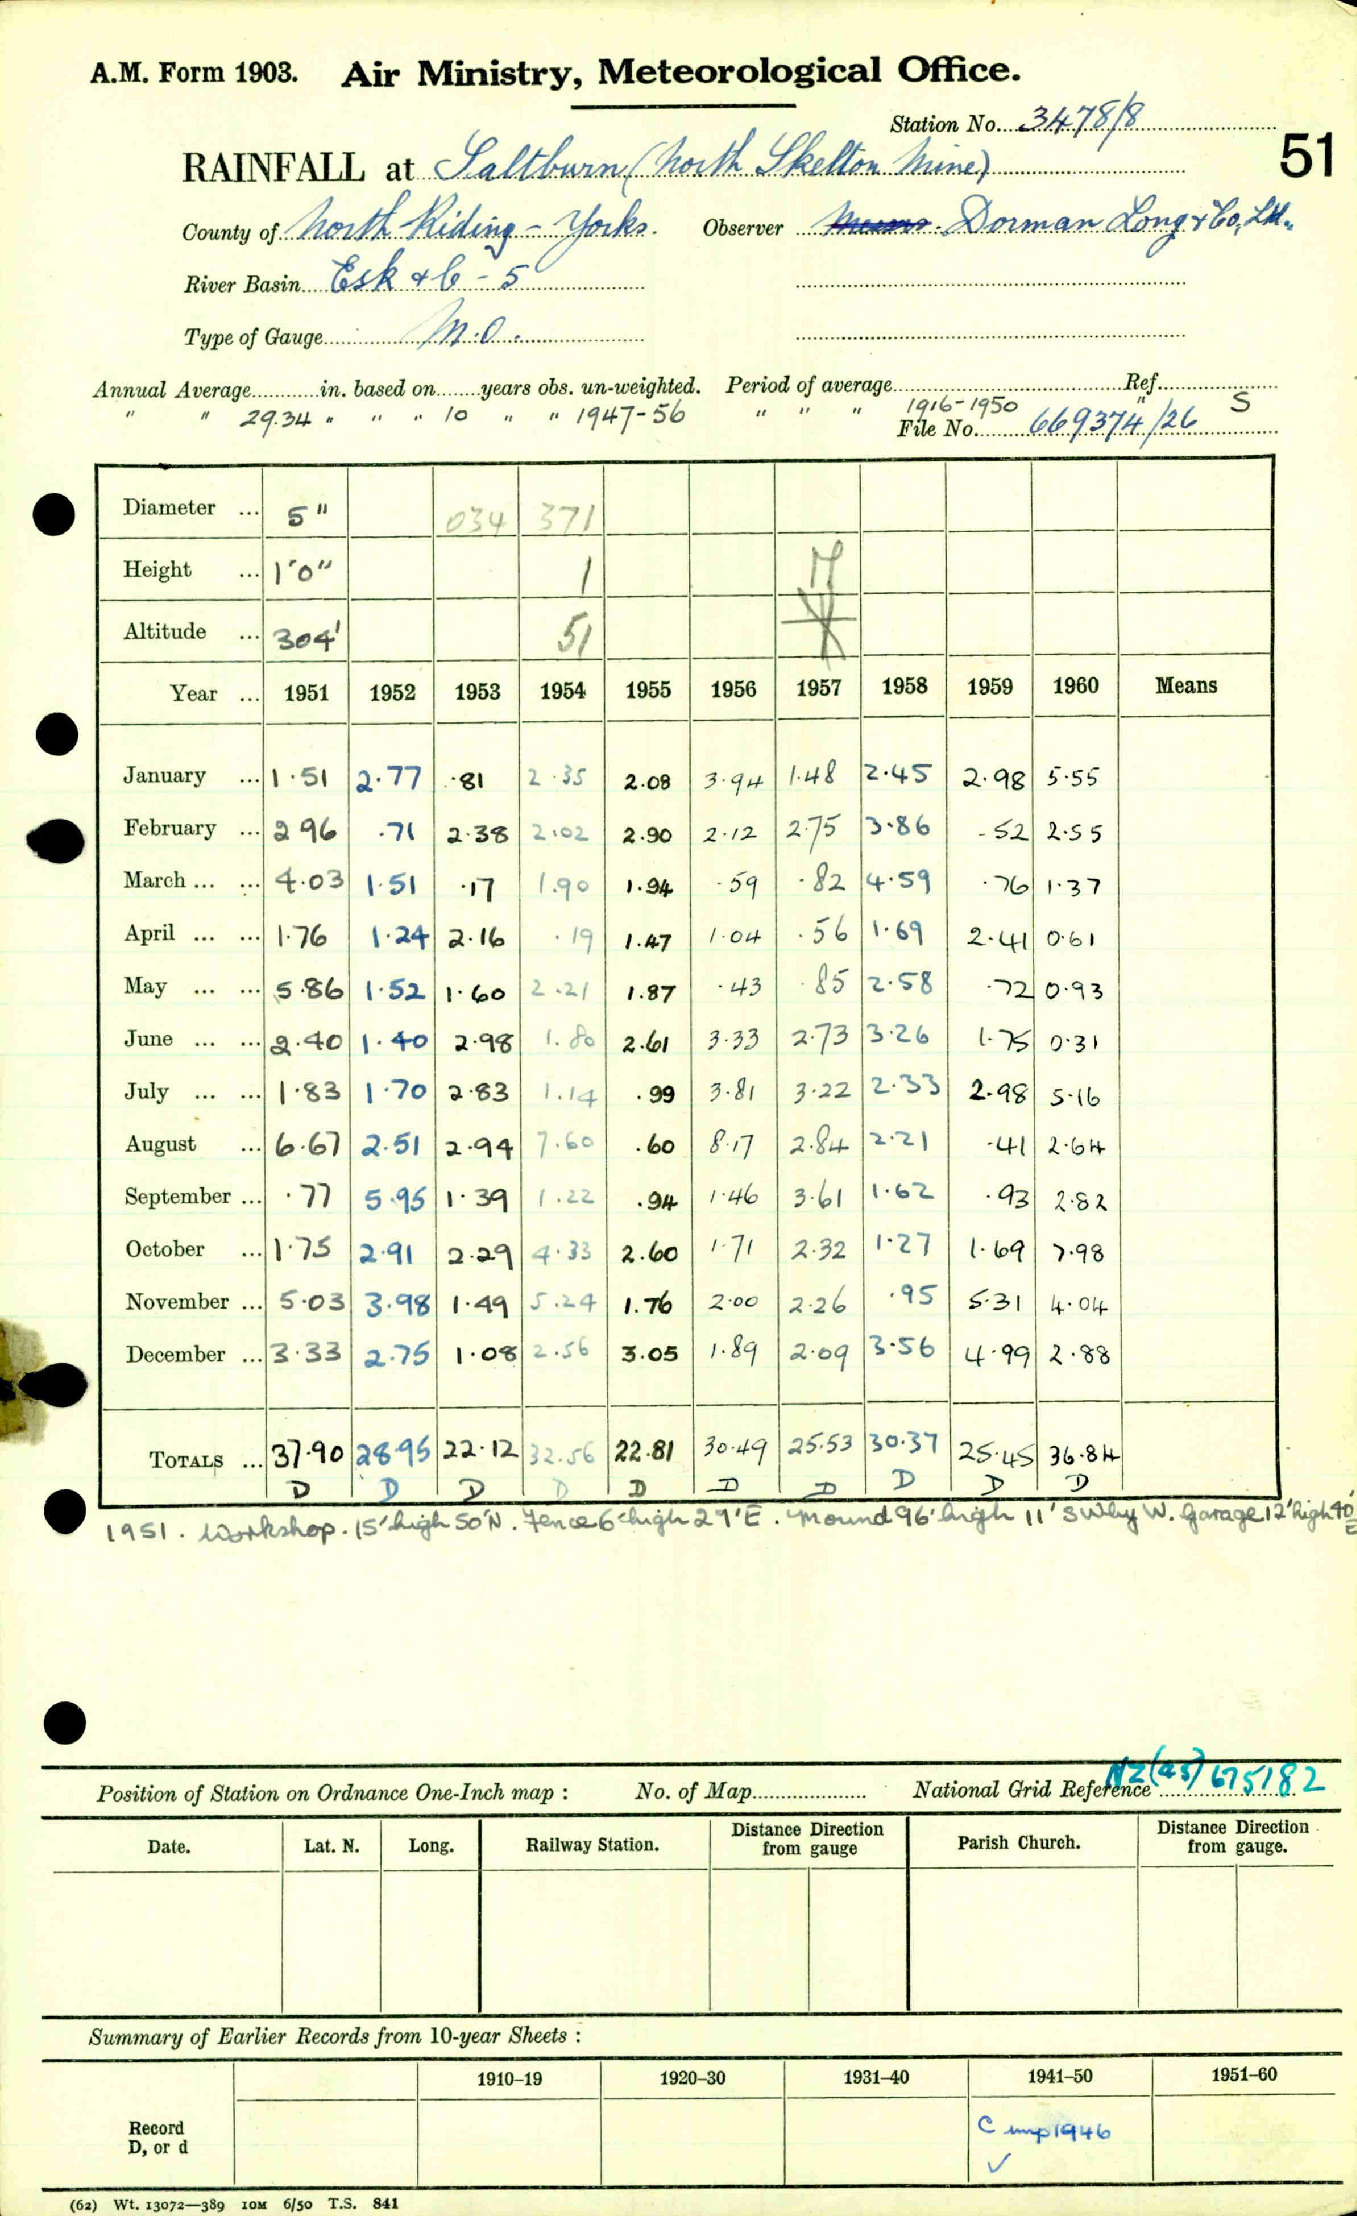 A.M. Form 1903. Air Ministry, Meteorological Office.
Station No. 3478/8
51
RAINFALL at Saltburn (North Skelton Mine)
County of North Riding - Yorks. Observer Messrs. Dorman Long & Co, Ltd.
River Basin Esk & C - 5
Type of Gauge M.O.
Annual Average............in. based on........years obs. un-weighted. Period of average........ Ref........
" " 29.34 " " " 10 " " 1947-56 " " " 1916-1950 " S
File No. 669374/26
Diameter ... 5" 034 371
Height ... 1'0" 1 17
Altitude ... 304' 51
Year ... 1951 1952 1953 1954 1955 1956 1957 1958 1959 1960 Means
January ... 1.51 2.77 .81 2.35 2.08 3.94 1.48 2.45 2.98 5.55
February ... 2.96 .71 2.38 2.02 2.90 2.12 2.75 3.86 .52 2.55
March ... ... 4.03 1.51 .17 1.90 1.94 .59 .82 4.59 .76 1.37
April ... ... 1.76 1.24 2.16 .19 1.47 1.04 .56 1.69 2.41 0.61
May ... ... 5.86 1.52 1.60 2.21 1.87 .43 .85 2.58 .72 0.93
June ... ... 2.40 1.40 2.98 1.80 2.61 3.33 2.73 3.26 1.75 0.31
July ... ... 1.83 1.70 2.83 1.14 .99 3.81 3.22 2.33 2.98 5.16
August ... 6.67 2.51 2.94 7.60 .60 8.17 2.84 2.21 .41 2.64
September ... .77 5.95 1.39 1.22 .94 1.46 3.61 1.62 .93 2.82
October ... 1.75 2.91 2.29 4.33 2.60 1.71 2.32 1.27 1.69 7.98
November ... 5.03 3.98 1.49 5.24 1.76 2.00 2.26 .95 5.31 4.04
December ... 3.33 2.75 1.08 2.56 3.05 1.89 2.09 3.56 4.99 2.88
TOTALS ... 37.90 28.95 22.12 32.56 22.81 30.49 25.53 30.37 25.45 36.84
D D D D D D D D D D
1951. Workshop. 15' high 50'N. Fence 6' high 29'E. Mound 96' high 11' SW by W. Garage 12' high 40' E
Position of Station on Ordnance One-Inch map : No. of Map........ National Grid Reference NZ (45) 675182
Date. Lat. N. Long. Railway Station. Distance Direction from gauge Parish Church. Distance Direction from gauge.
Summary of Earlier Records from 10-year Sheets :
1910–19 1920–30 1931–40 1941–50 1951–60
Record
D, or d
C imp 1946
✓
(62) Wt. 13072—389 10M 6/50 T.S. 841